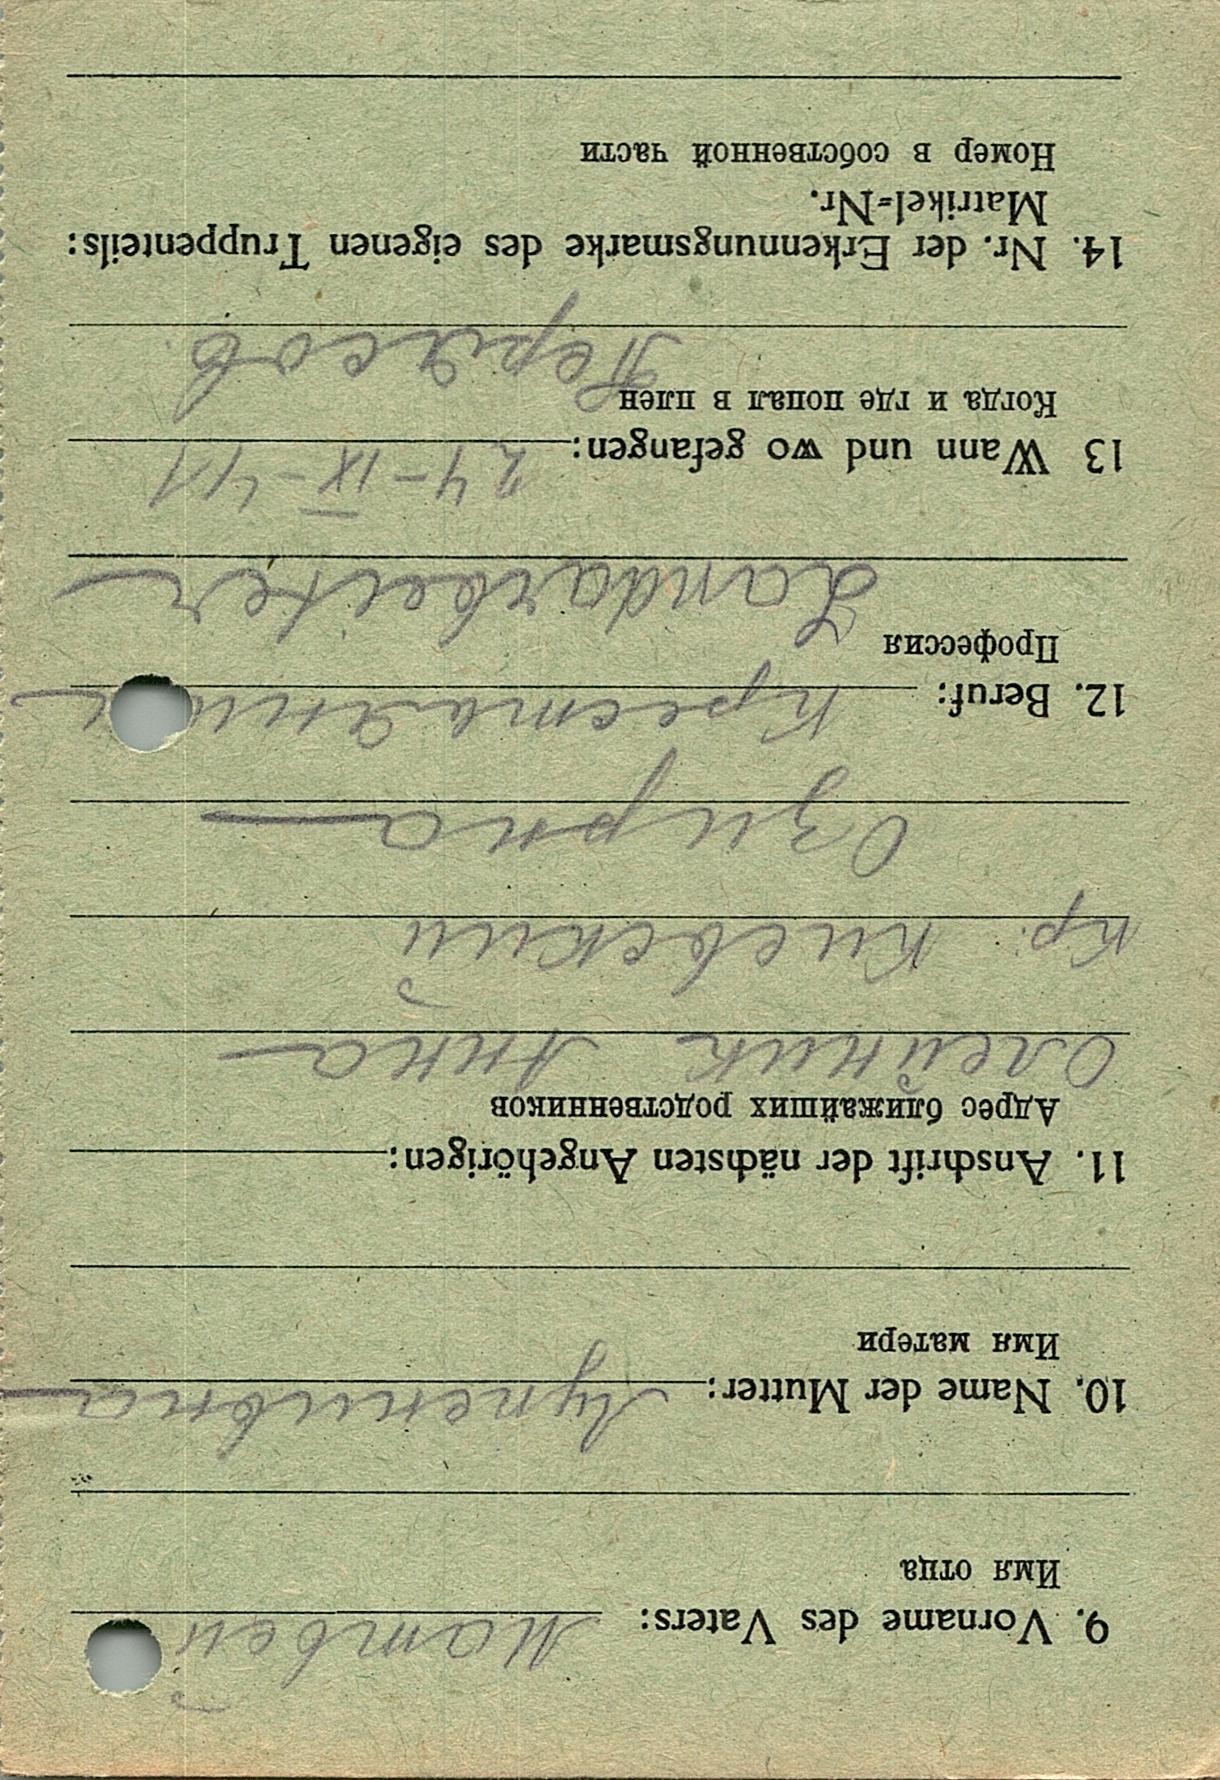 9. Vorname des Vaters: Матвей
Имя отца
10. Name der Mutter:
Имя матери
11. Anschrift der nächsten Angehörigen:
Адрес ближайших родственников
Олейник Анна
кр. Киевский
Озирна
12. Beruf: Крестьянин
Профессия
Landarbeiter
13 Wann und wo gefangen: 24-IX-41
Когда и где попал в плен
14. Nr. der Erkennungsmarke des eigenen Truppenteils:
Matrikel-Nr.
Номер в собственной части